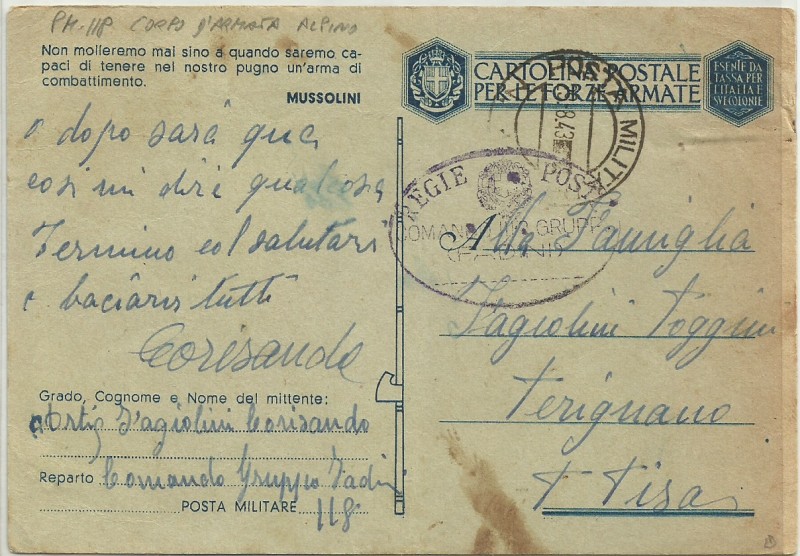 PM. 118 CORPO D'ARMATA ALPINO
Non molleremo mai sino a quando saremo ca-
paci di tenere nel nostro pugno un'arma di
combattimento.
MUSSOLINI
o dopo sarà qua
così mi dirà qualcosa
Termino col salutarvi
e baciarvi tutti
Corisando
Grado, Cognome e Nome del mittente:
Artig Fagiolini Corisando
Reparto Comando Gruppo
POSTA MILITARE 118
CARTOLINA POSTALE
PER LE FORZE ARMATE
ESENTE DA
TASSA PER
L'ITALIA E
SUE COLONIE
POSTA MILITARE
8.43
REGIE POSTE
COMANDO GRUPPO
Alla Famiglia
Fagiolini Poggini
Perignano
P Pisa